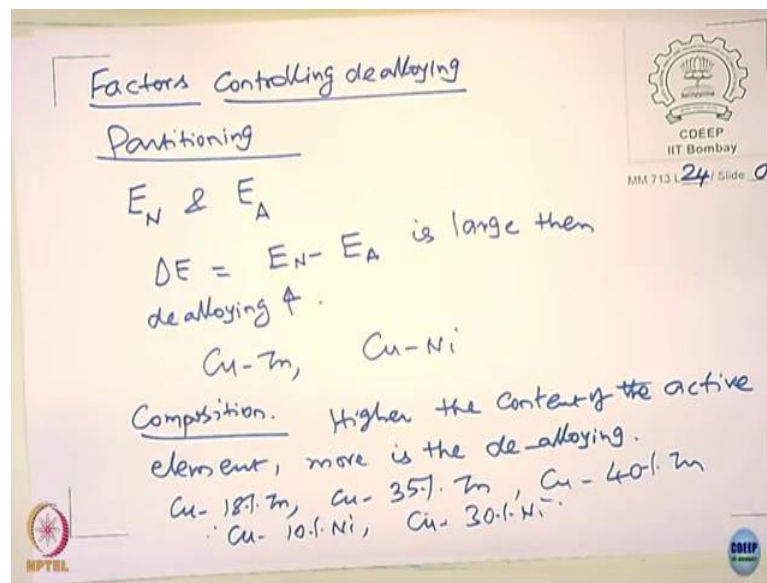 Factors Controlling dealloying
Partitioning
E_N & E_A
ΔE = E_N - E_A is large then
dealloying ↑.
Cu-Zn, Cu-Ni
Composition. Higher the content of the active
element, more is the de-alloying.
Cu- 18%. Zn, Cu- 35%. Zn, Cu- 40%. Zn
Cu- 10%. Ni, Cu- 30%. Ni.
CDEEP
IIT Bombay
MM 713 L 24 / Slide 0
NPTEL
CDEEP